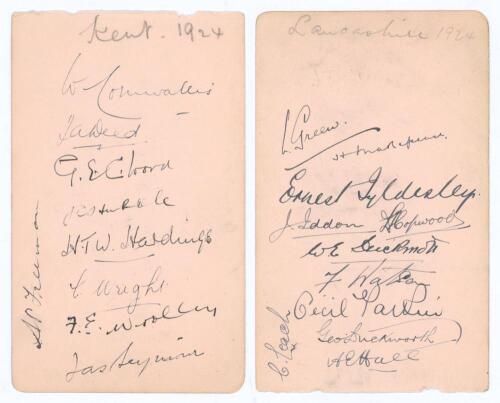 Kent. 1924
W. Cornwallis
J A Deed
G. E. C. Wood
J C Hubble
H. T. W. Hardinge
C Wright
F. E. Woolley
Jas Seymour
A P Freeman
Lancashire 1924
L. Green.
H Makepeace
Ernest Tyldesley.
J. Iddon L Hopwood
W E Duckworth
F Watson
Cecil Parkin
Geo Duckworth
A E Hall
C. Leach